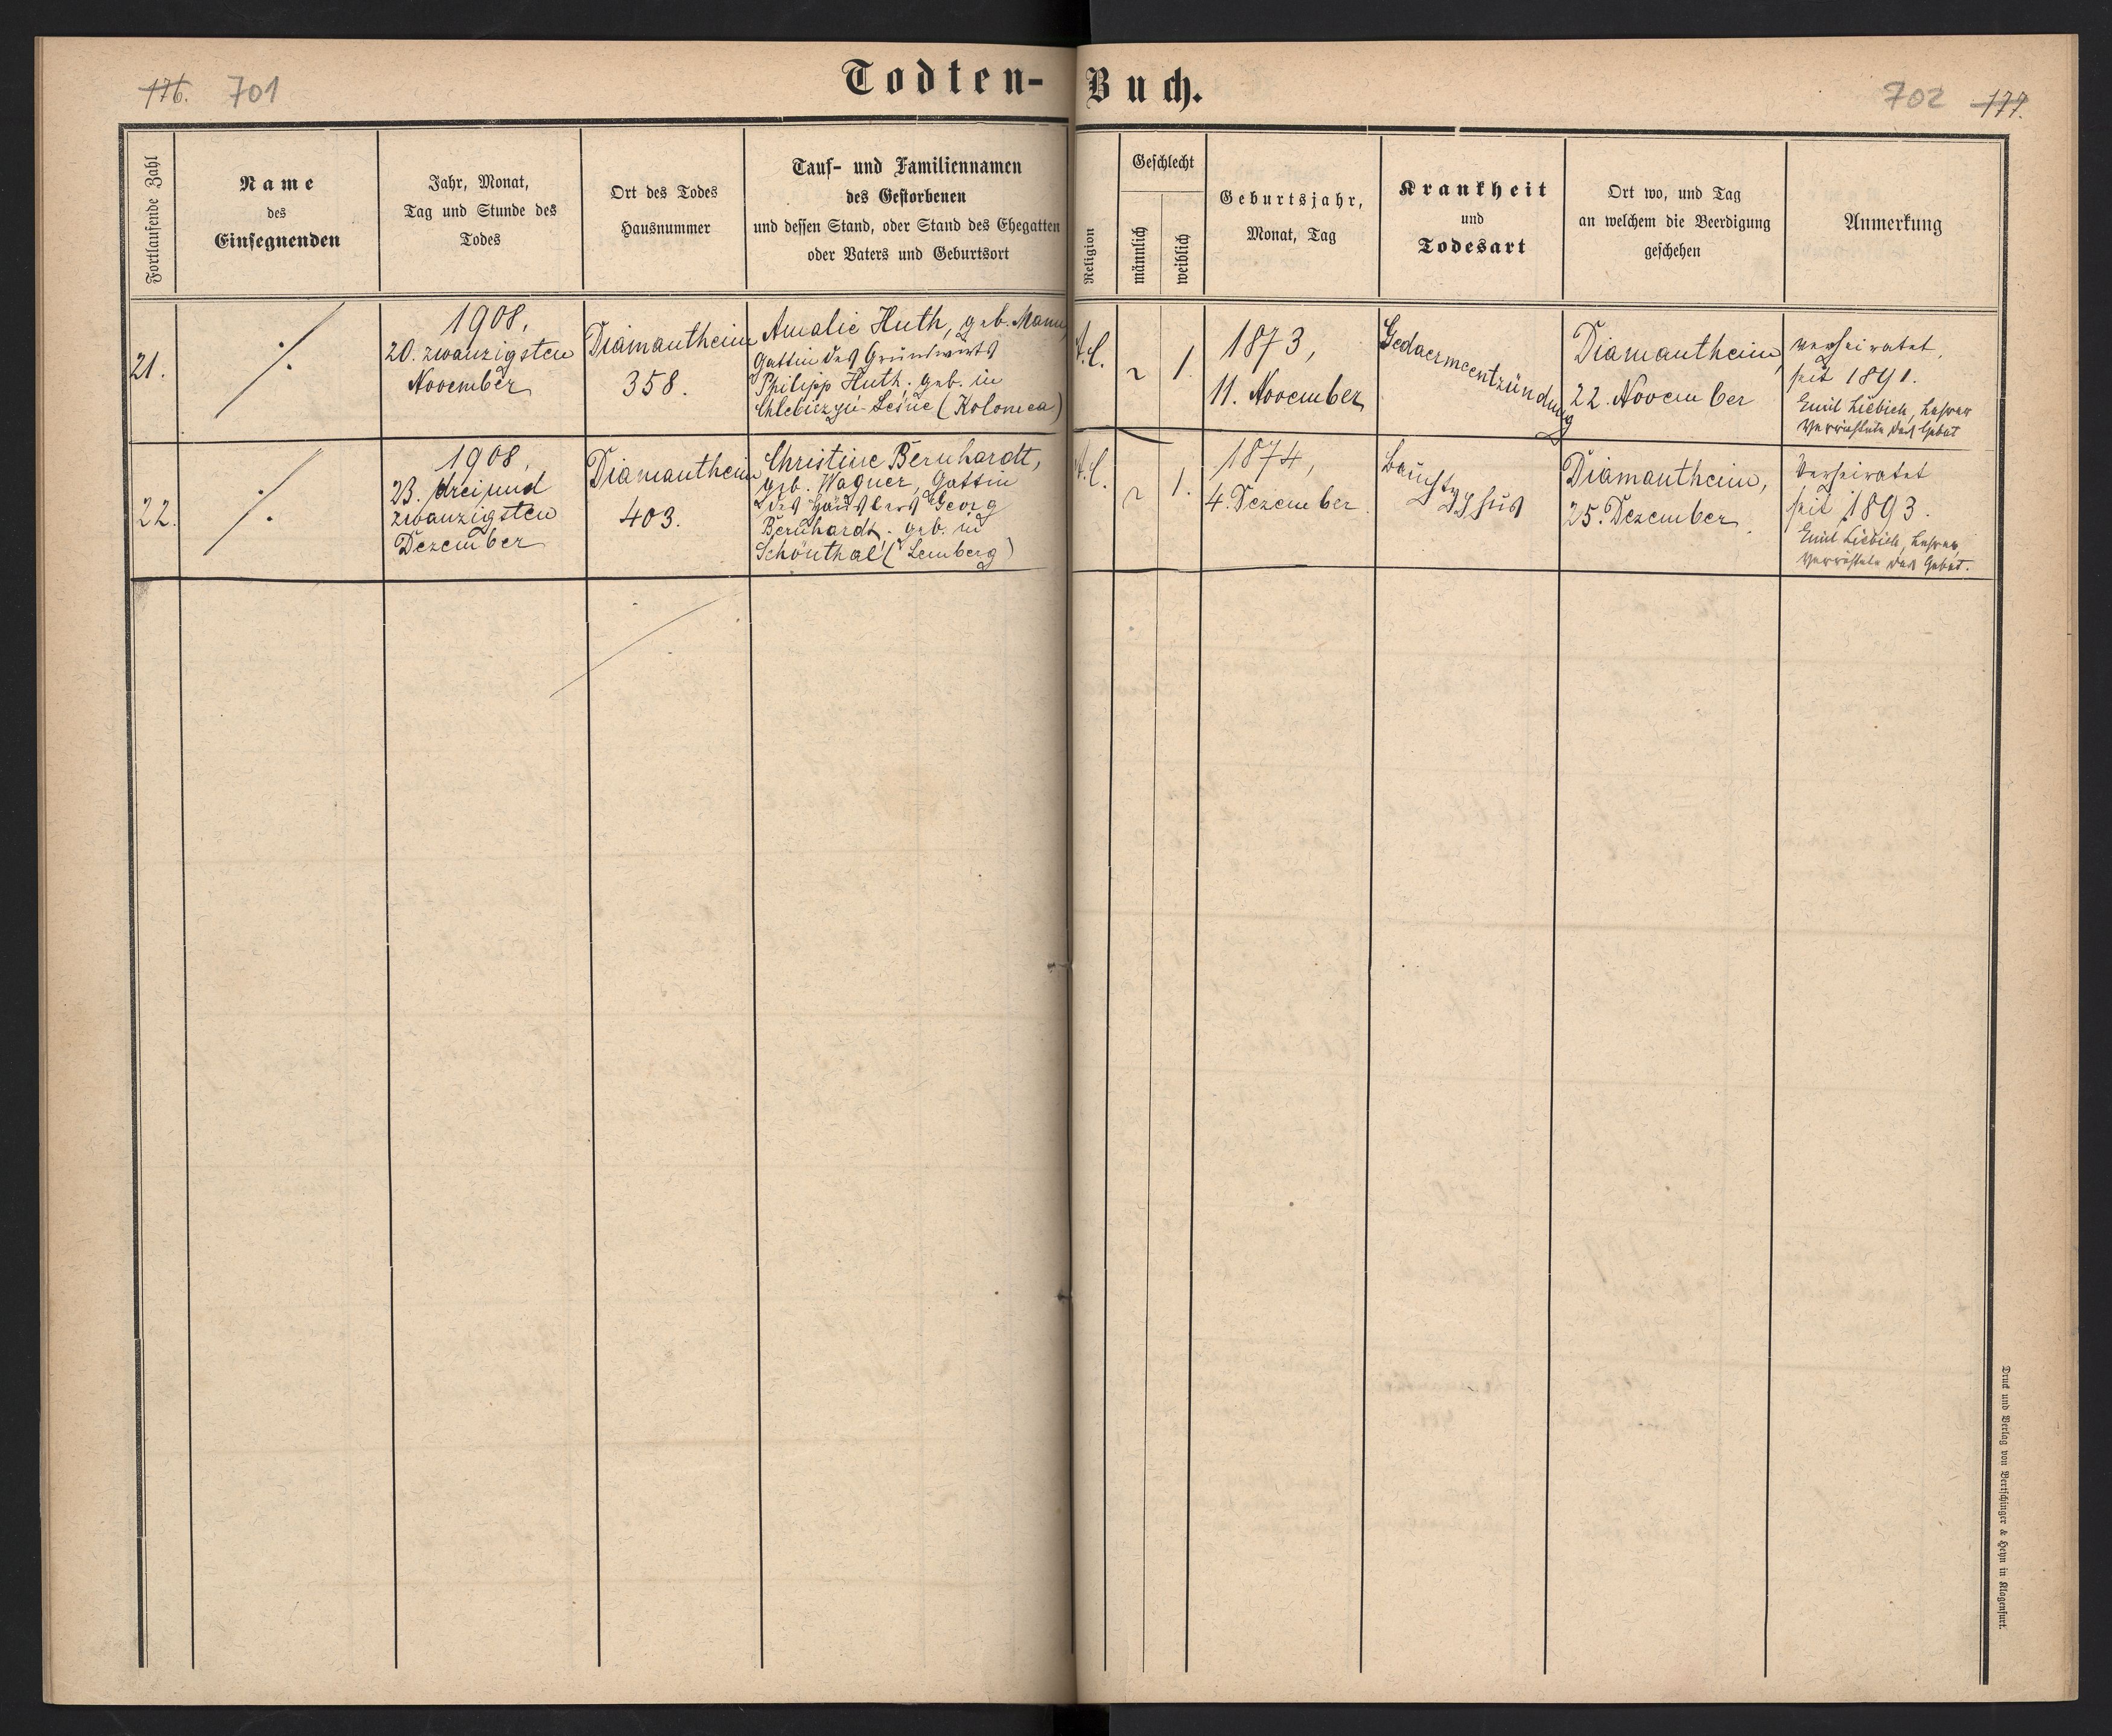 176. 701
Todten-Buch.
702 177.
Fortlaufende Zahl
Name
des
Einsegnenden
Jahr, Monat,
Tag und Stunde des
Todes
Ort des Todes
Hausnummer
Tauf- und Familiennamen
des Gestorbenen
und dessen Stand, oder Stand des Ehegatten
oder Vaters und Geburtsort
Religion
Geschlecht
männlich
weiblich
Geburtsjahr,
Monat, Tag
Krankheit
und
Todesart
Ort wo, und Tag
an welchem die Beerdigung
geschehen
Anmerkung
21.
1908.
20. zwanzigsten
November
Diamantheim
358.
Amalie Huth, geb. Mann,
Gattin des Grundwirts
Philipp Huth. geb. in
(Kolomea)
A.C.
1.
1873,
11. November
Gedaermeentzündung
Diamantheim,
22. November
verheiratet,
seit 1891.
Emil Liebich, Lehrer
verrichtete das Gebet
22.
1908,
23. dreiund
zwanzigsten
Dezember
Diamantheim
403.
Christine Bernhardt,
geb. Wagner, Gattin
des Häuslers Georg
Bernhardt. geb. in
Schönthal (Lemberg)
A.C.
1.
1874,
4. Dezember.
Bauchtyphus
Diamantheim,
25. Dezember.
Verheiratet
seit 1893.
Emil Liebich, Lehrer,
verrichtete das Gebet.
Druck und Verlag von Bertschinger & Heyn in Klagenfurt.